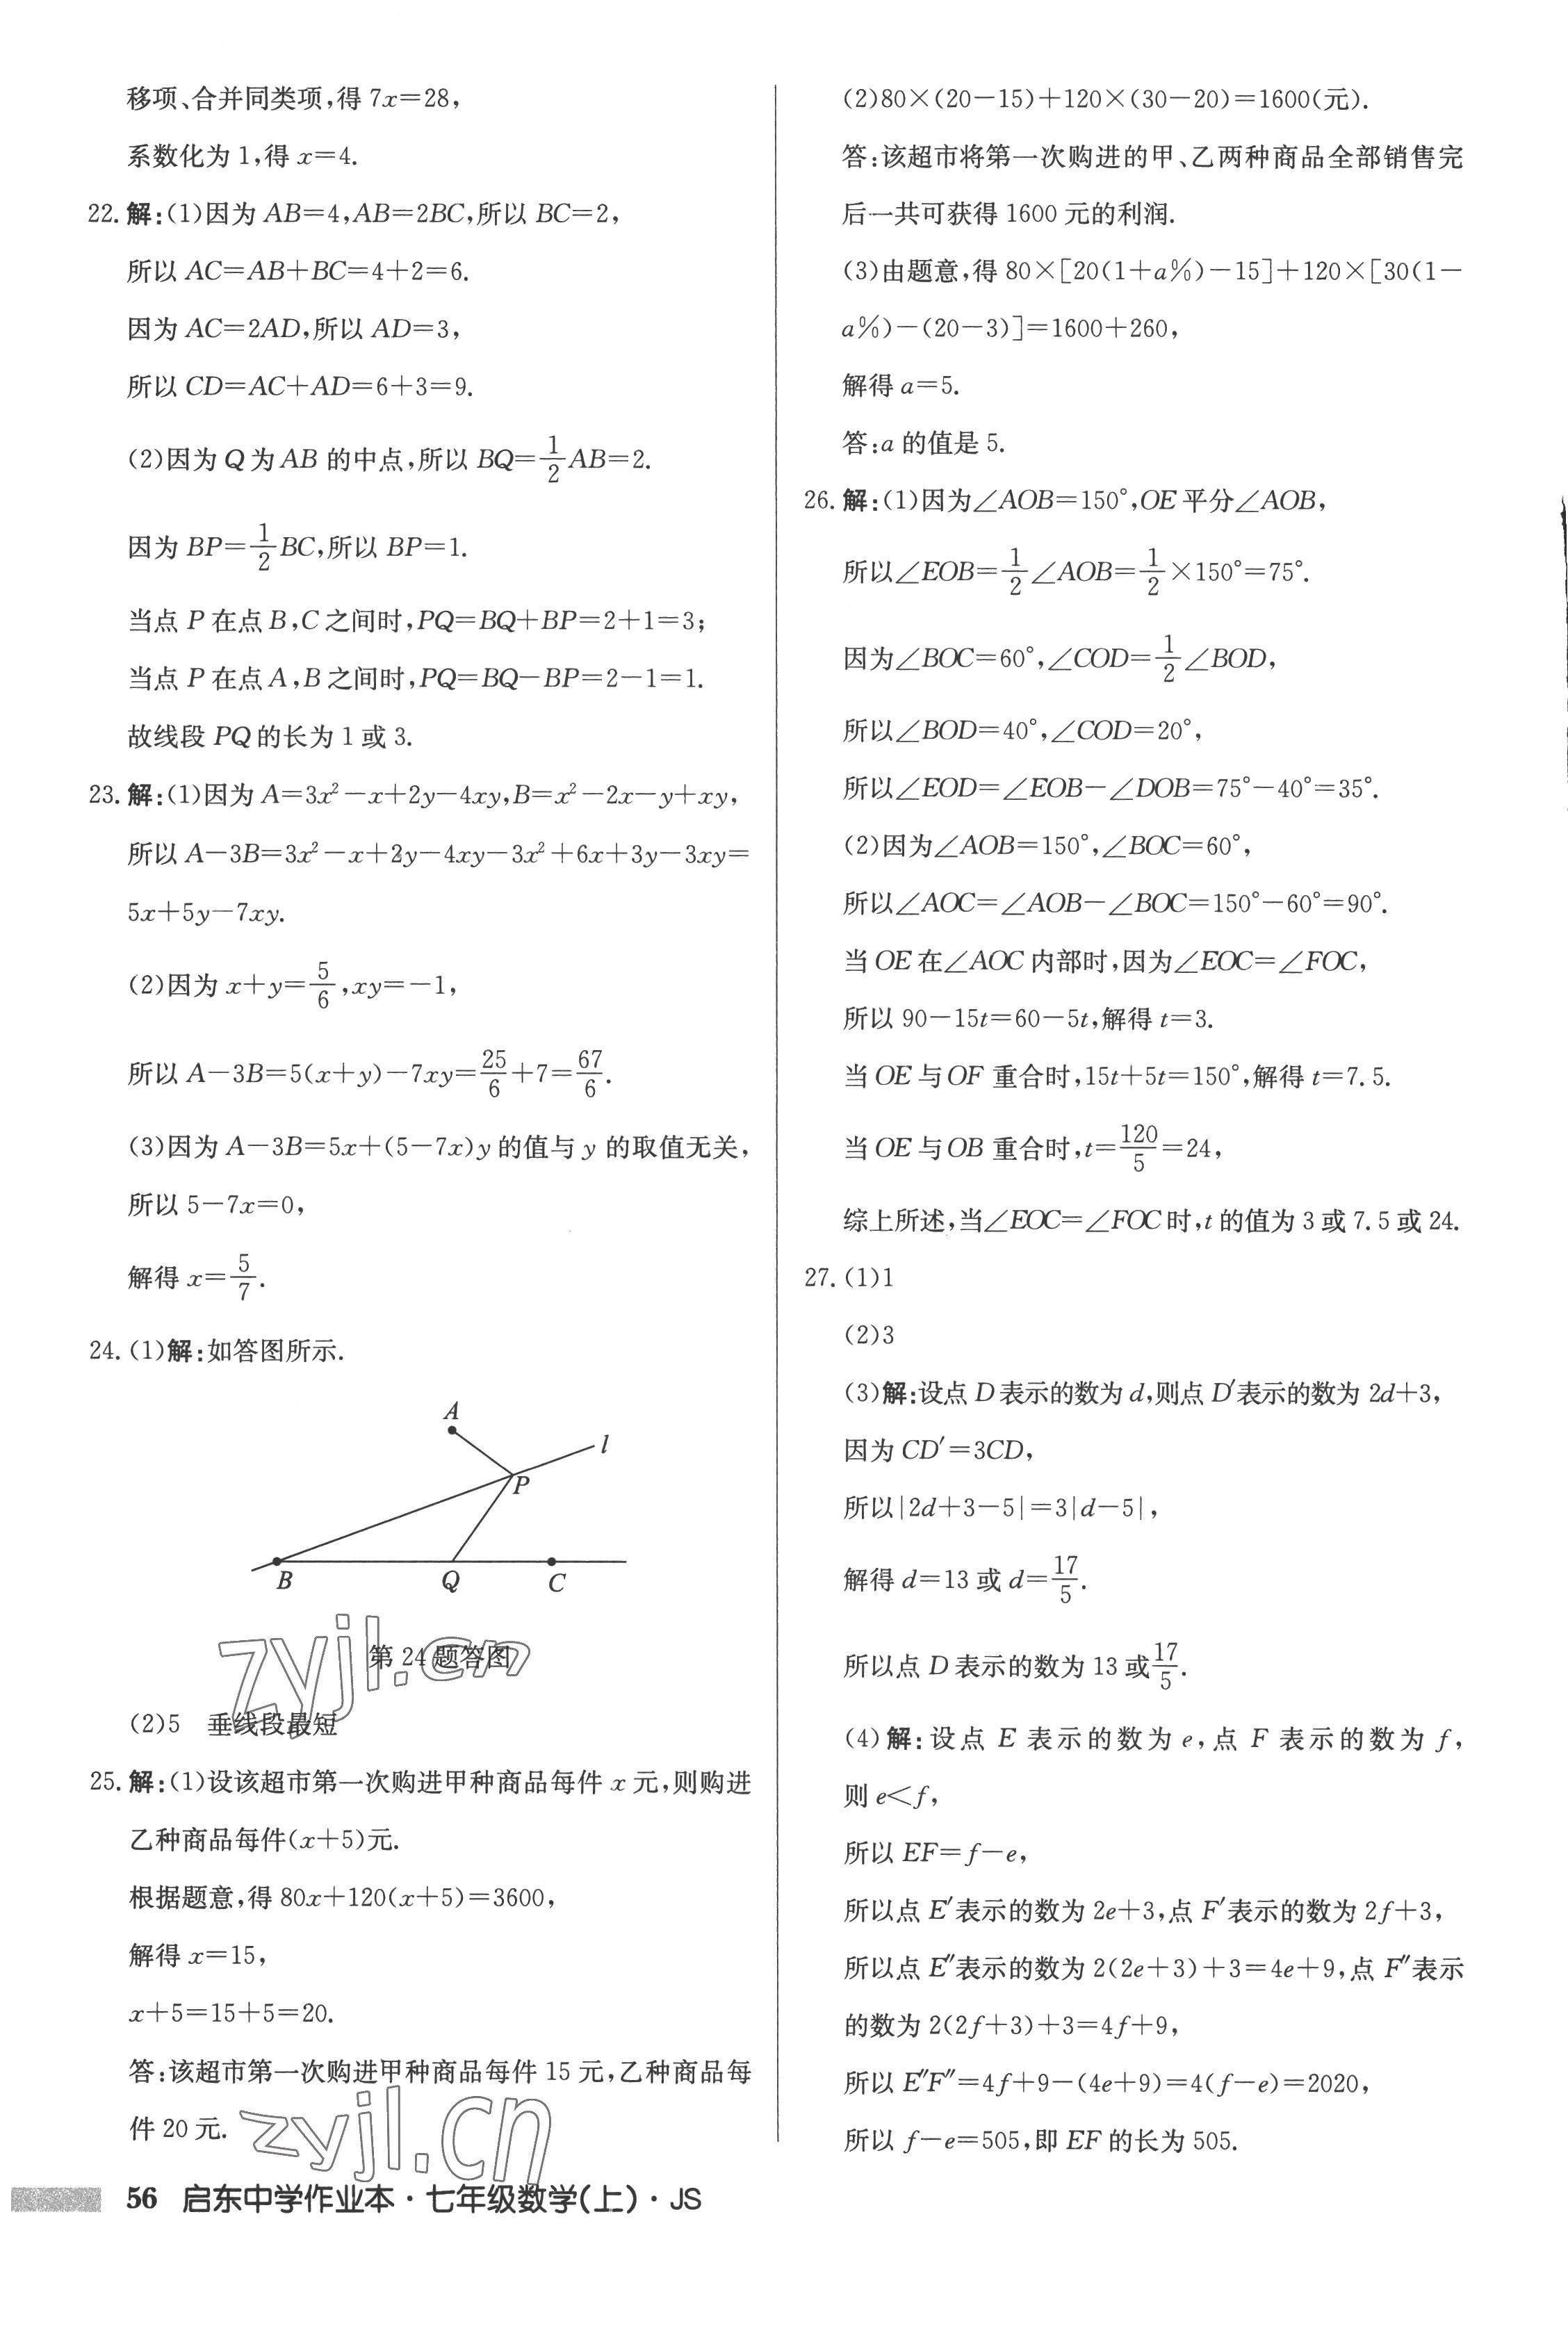 移项、合并同类项,得 7x=28,
系数化为 1,得 x=4.
22. 解:(1)因为 AB=4,AB=2BC,所以 BC=2,
所以 AC=AB+BC=4+2=6.
因为 AC=2AD,所以 AD=3,
所以 CD=AC+AD=6+3=9.
(2)因为 Q 为 AB 的中点,所以 BQ=1/2 AB=2.
因为 BP=1/2 BC,所以 BP=1.
当点 P 在点 B,C 之间时,PQ=BQ+BP=2+1=3;
当点 P 在点 A,B 之间时,PQ=BQ-BP=2-1=1.
故线段 PQ 的长为 1 或 3.
23. 解:(1)因为 A=3x²-x+2y-4xy,B=x²-2x-y+xy,
所以 A-3B=3x²-x+2y-4xy-3x²+6x+3y-3xy=
5x+5y-7xy.
(2)因为 x+y=5/6,xy=-1,
所以 A-3B=5(x+y)-7xy=25/6+7=67/6.
(3)因为 A-3B=5x+(5-7x)y 的值与 y 的取值无关,
所以 5-7x=0,
解得 x=5/7.
24. (1)解:如答图所示.
A
l
P
B
Q
C
第 24 题答图
zyjl.cn
(2)5 垂线段最短
25. 解:(1)设该超市第一次购进甲种商品每件 x 元,则购进
乙种商品每件(x+5)元.
根据题意,得 80x+120(x+5)=3600,
解得 x=15,
x+5=15+5=20.
答:该超市第一次购进甲种商品每件 15 元,乙种商品每
件 20 元.
zyjl.cn
(2)80×(20-15)+120×(30-20)=1600(元).
答:该超市将第一次购进的甲、乙两种商品全部销售完
后一共可获得 1600 元的利润.
(3)由题意,得 80×[20(1+a%)-15]+120×[30(1-
a%)-(20-3)]=1600+260,
解得 a=5.
答:a 的值是 5.
26. 解:(1)因为∠AOB=150°,OE 平分∠AOB,
所以∠EOB=1/2∠AOB=1/2×150°=75°.
因为∠BOC=60°,∠COD=1/2∠BOD,
所以∠BOD=40°,∠COD=20°,
所以∠EOD=∠EOB-∠DOB=75°-40°=35°.
(2)因为∠AOB=150°,∠BOC=60°,
所以∠AOC=∠AOB-∠BOC=150°-60°=90°.
当 OE 在∠AOC 内部时,因为∠EOC=∠FOC,
所以 90-15t=60-5t,解得 t=3.
当 OE 与 OF 重合时,15t+5t=150°,解得 t=7.5.
当 OE 与 OB 重合时,t=120/5=24,
综上所述,当∠EOC=∠FOC 时,t 的值为 3 或 7.5 或 24.
27. (1)1
(2)3
(3)解:设点 D 表示的数为 d,则点 D′表示的数为 2d+3,
因为 CD′=3CD,
所以|2d+3-5|=3|d-5|,
解得 d=13 或 d=17/5.
所以点 D 表示的数为 13 或 17/5.
(4)解:设点 E 表示的数为 e,点 F 表示的数为 f,
则 e<f,
所以 EF=f-e,
所以点 E′表示的数为 2e+3,点 F′表示的数为 2f+3,
所以点 E″表示的数为 2(2e+3)+3=4e+9,点 F″表示
的数为 2(2f+3)+3=4f+9,
所以 E″F″=4f+9-(4e+9)=4(f-e)=2020,
所以 f-e=505,即 EF 的长为 505.
56 启东中学作业本·七年级数学(上)·JS